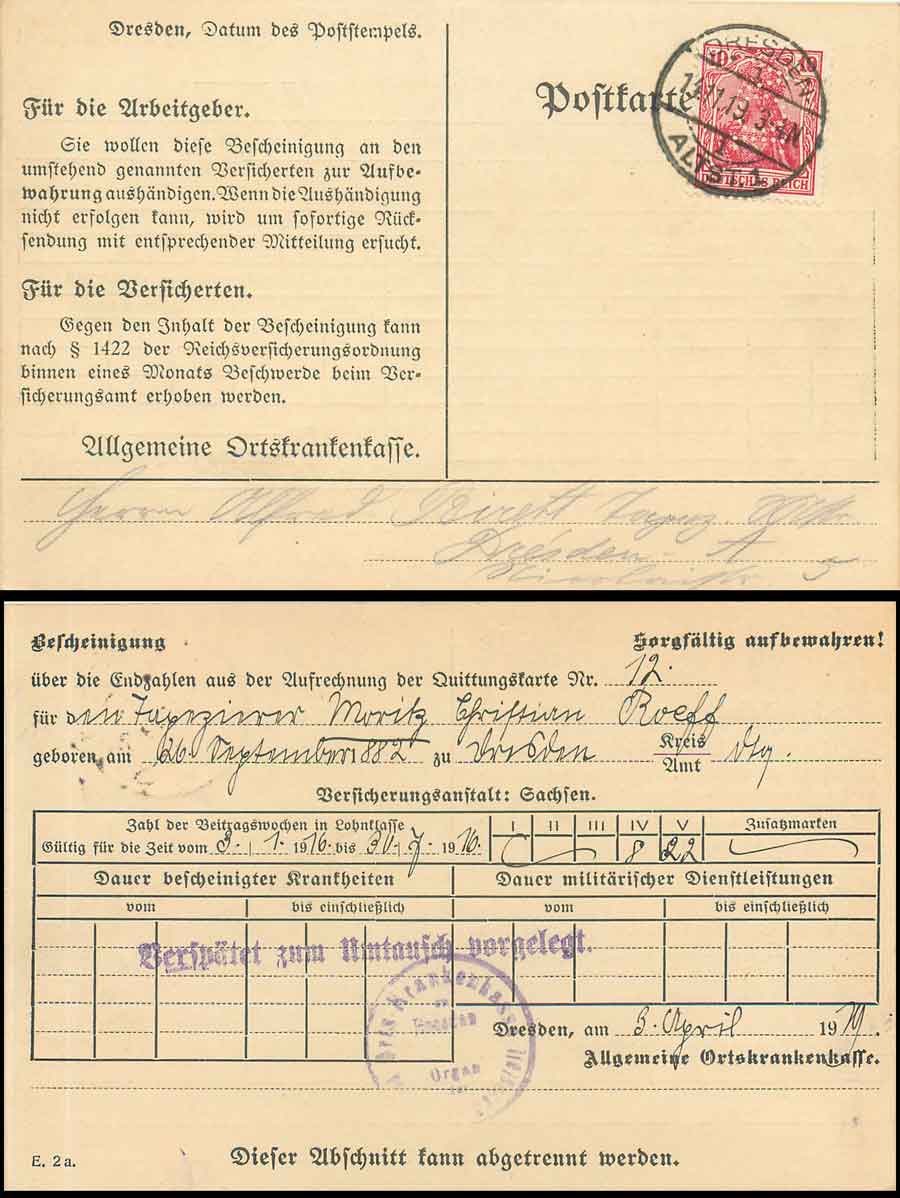 Dresden, Datum des Poststempels.
Für die Arbeitgeber.
Sie wollen diese Bescheinigung an den
umstehend genannten Versicherten zur Aufbe-
wahrung aushändigen. Wenn die Aushändigung
nicht erfolgen kann, wird um sofortige Rück-
sendung mit entsprechender Mitteilung ersucht.
Für die Versicherten.
Gegen den Inhalt der Bescheinigung kann
nach § 1422 der Reichsversicherungsordnung
binnen eines Monats Beschwerde beim Ver-
sicherungsamt erhoben werden.
Allgemeine Ortskrankenkasse.
Postkarte
DRESDEN
ALTST. 1
10
DEUTSCHES REICH
Herrn Alfred
Dresden-A
5
Bescheinigung
Sorgfältig aufbewahren!
über die Endzahlen aus der Aufrechnung der Quittungskarte Nr. 12.
für den Tapezierer Moritz Christian
geboren am 26. September 1882 zu Dresden Kreis Amt Dtg.
Versicherungsanstalt: Sachsen.
Zahl der Beitragswochen in Lohnklasse I II III IV V Zusatzmarken
Gültig für die Zeit vom 3. 1. 1916. bis 30. 7. 1916. 8 22
Dauer bescheinigter Krankheiten Dauer militärischer Dienstleistungen
vom bis einschließlich vom bis einschließlich
Verspätet zum Umtausch vorgelegt.
Orts Krankenkasse
Dresden
Organ
der
Dresden, am 3. April 1919.
Allgemeine Ortskrankenkasse.
E. 2a.
Dieser Abschnitt kann abgetrennt werden.